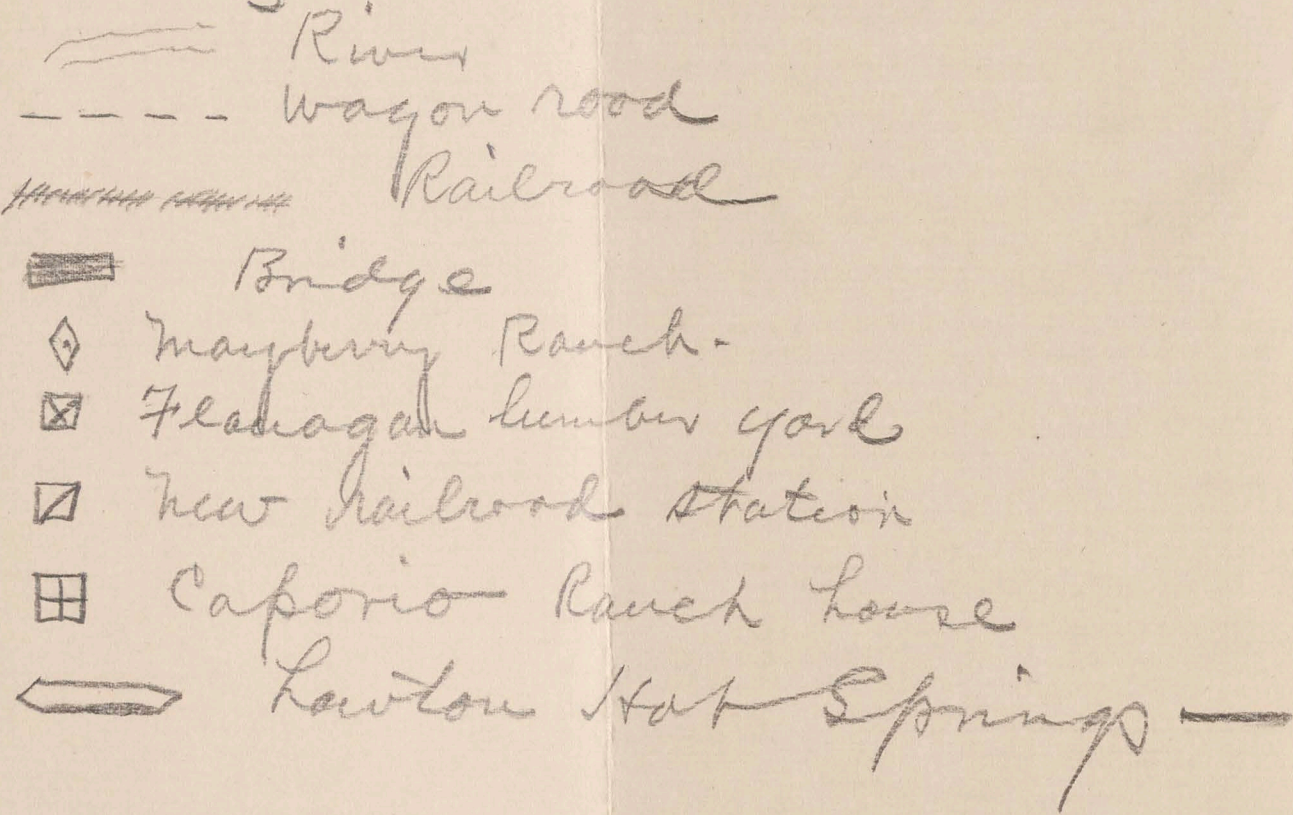 River
Wagon road
Railroad
Bridge
Mayberry Ranch.
Flanagan lumber yard
New railroad station
Caporio Ranch house
Lawton Hot Springs —